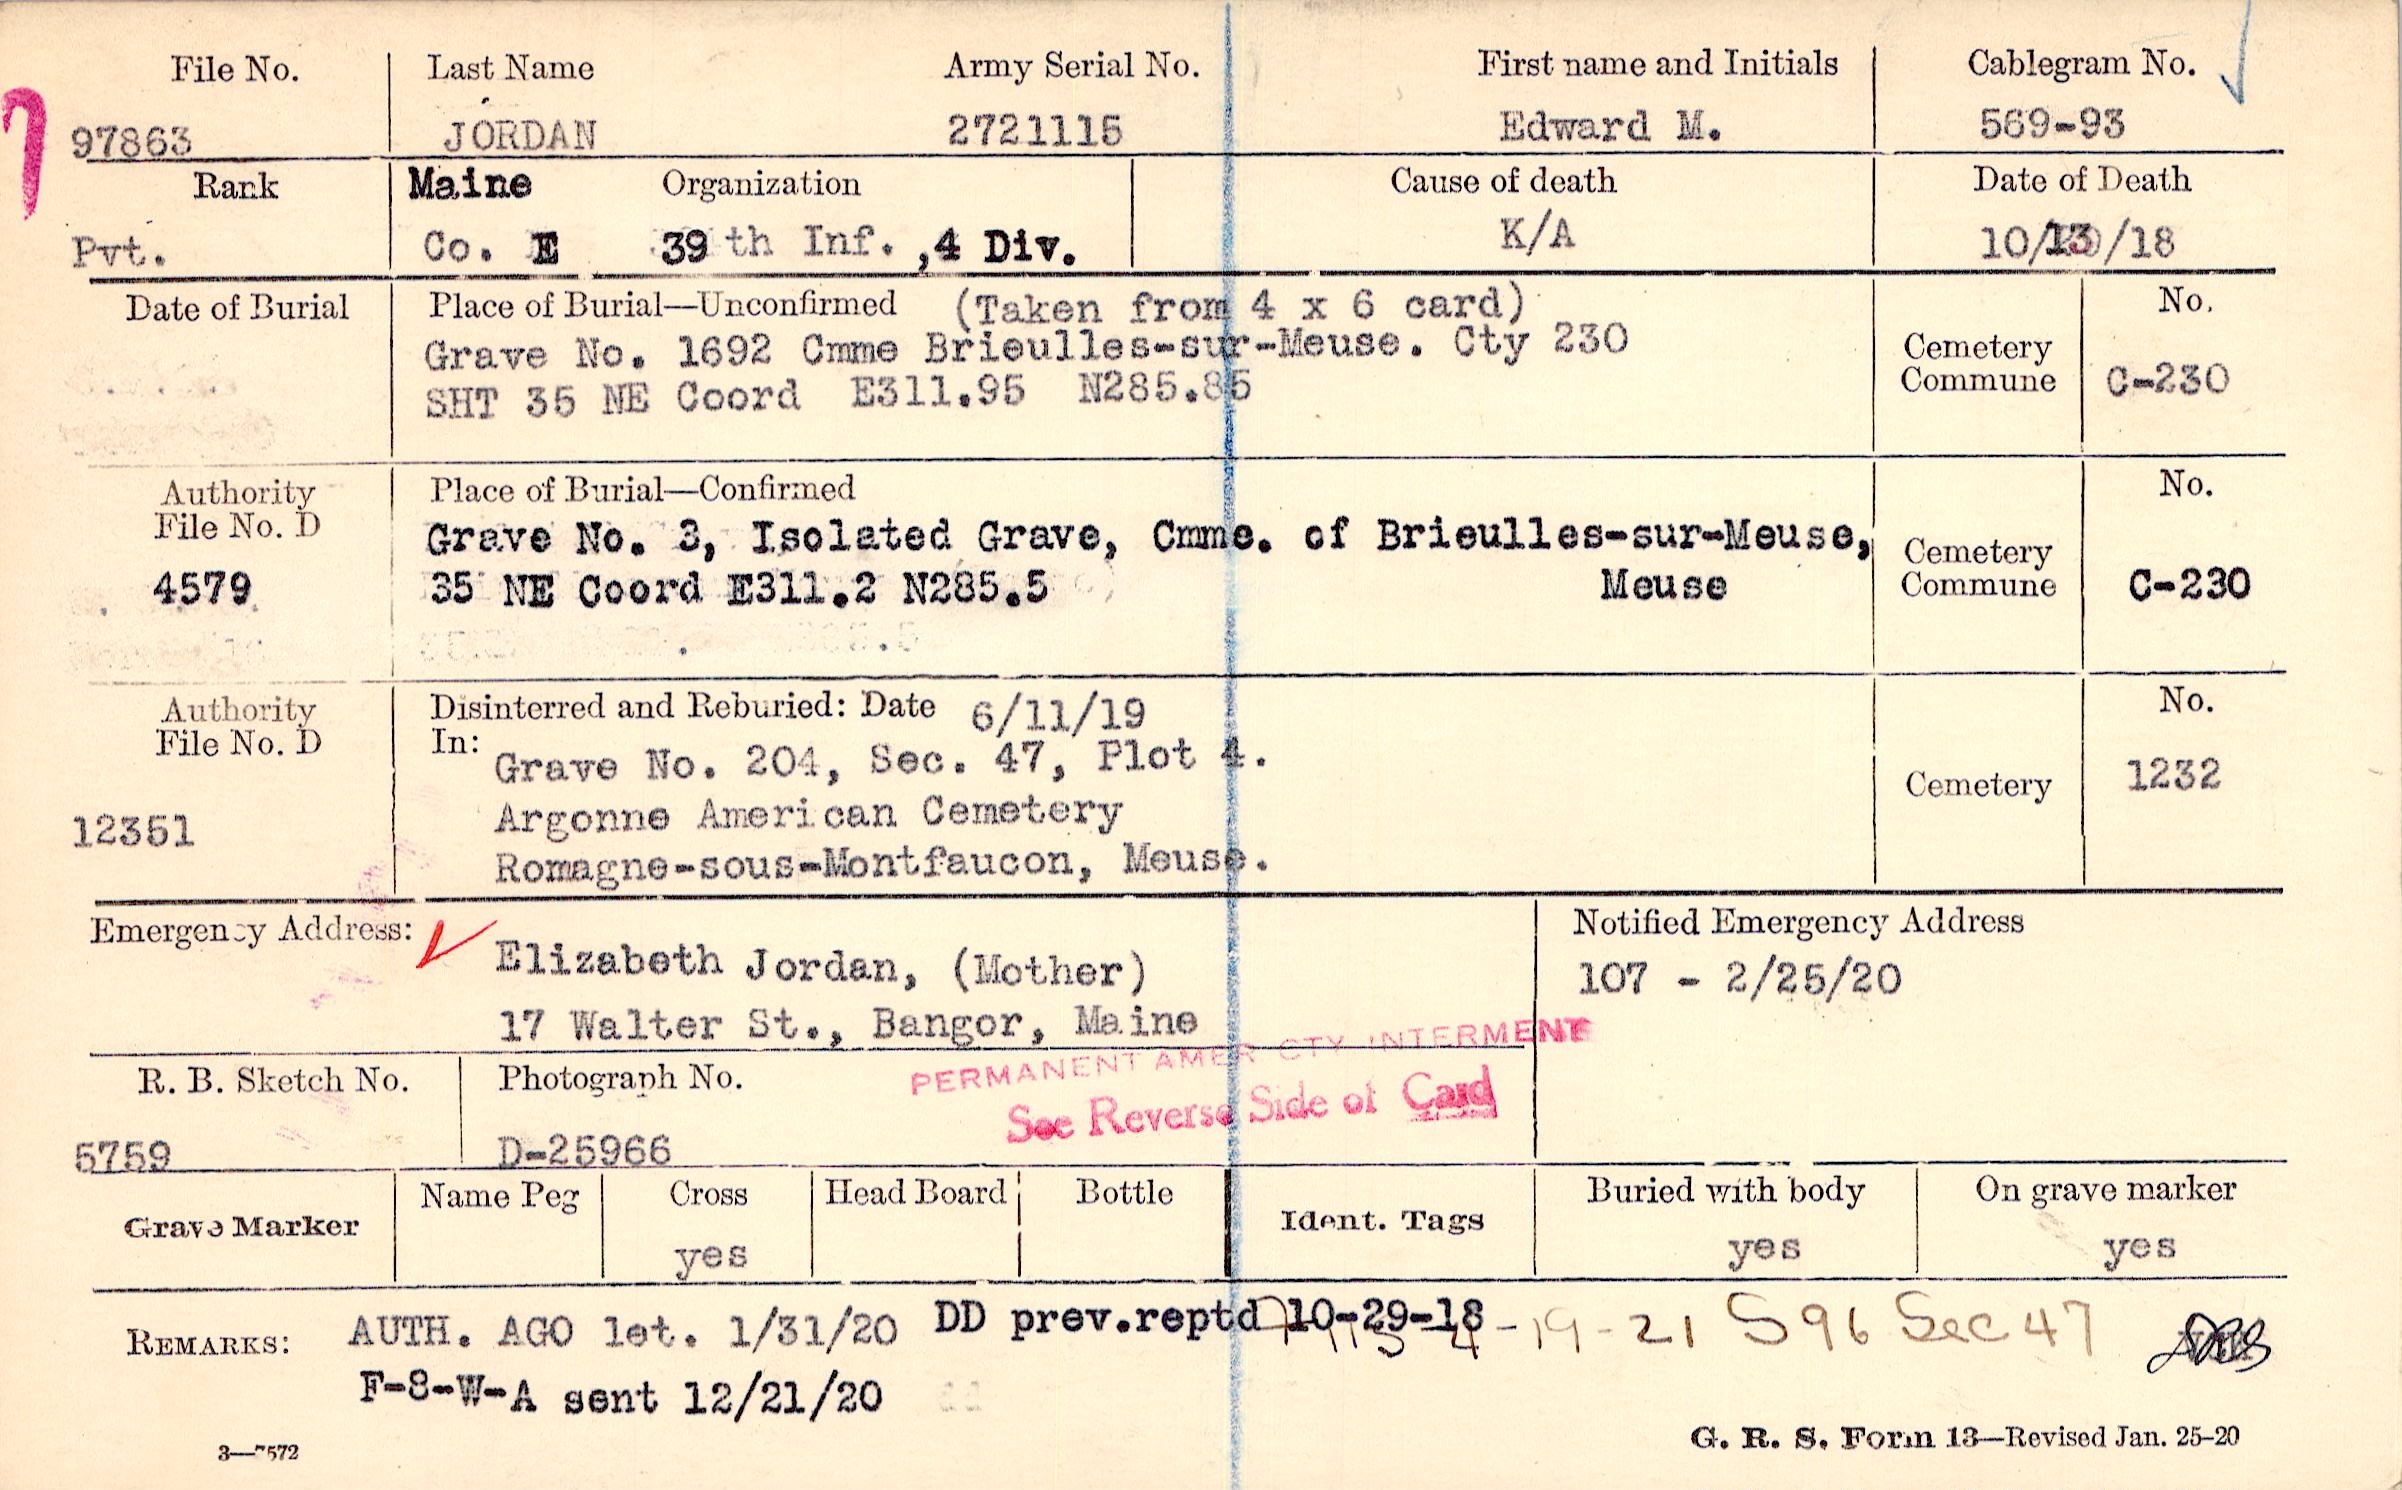 File No. Last Name Army Serial No. First name and Initials Cablegram No.
97863 JORDAN 2721115 Edward M. 569-93
Rank Maine Organization Cause of death Date of Death
Pvt. Co. E 39 th Inf. ,4 Div. K/A 10/13/18
Date of Burial Place of Burial—Unconfirmed (Taken from 4 x 6 card) No.
Grave No. 1692 Cmme Brieulles-sur-Meuse. Cty 230 Cemetery
SHT 35 NE Coord E311.95 N285.85 Commune C-230
Authority Place of Burial—Confirmed No.
File No. D Grave No. 3, Isolated Grave, Cmme. of Brieulles-sur-Meuse, Cemetery
4579 35 NE Coord E311.2 N285.5 Meuse Commune C-230
Authority Disinterred and Reburied: Date 6/11/19 No.
File No. D In: Grave No. 204, Sec. 47, Plot 4. Cemetery 1232
12351 Argonne American Cemetery
Romagne-sous-Montfaucon, Meuse.
Emergency Address: Elizabeth Jordan, (Mother) Notified Emergency Address
17 Walter St., Bangor, Maine 107 - 2/25/20
PERMANENT AMER CTY INTERMENT
R. B. Sketch No. Photograph No. See Reverse Side of Card
5759 D-25966
Grave Marker Name Peg Cross Head Board Bottle Ident. Tags Buried with body On grave marker
yes yes yes
REMARKS: AUTH. AGO let. 1/31/20 DD prev.reptd 10-29-18 4-19-21 S96 Sec 47
F-8-W-A sent 12/21/20
3—7572 G. R. S. Form 13—Revised Jan. 25-20